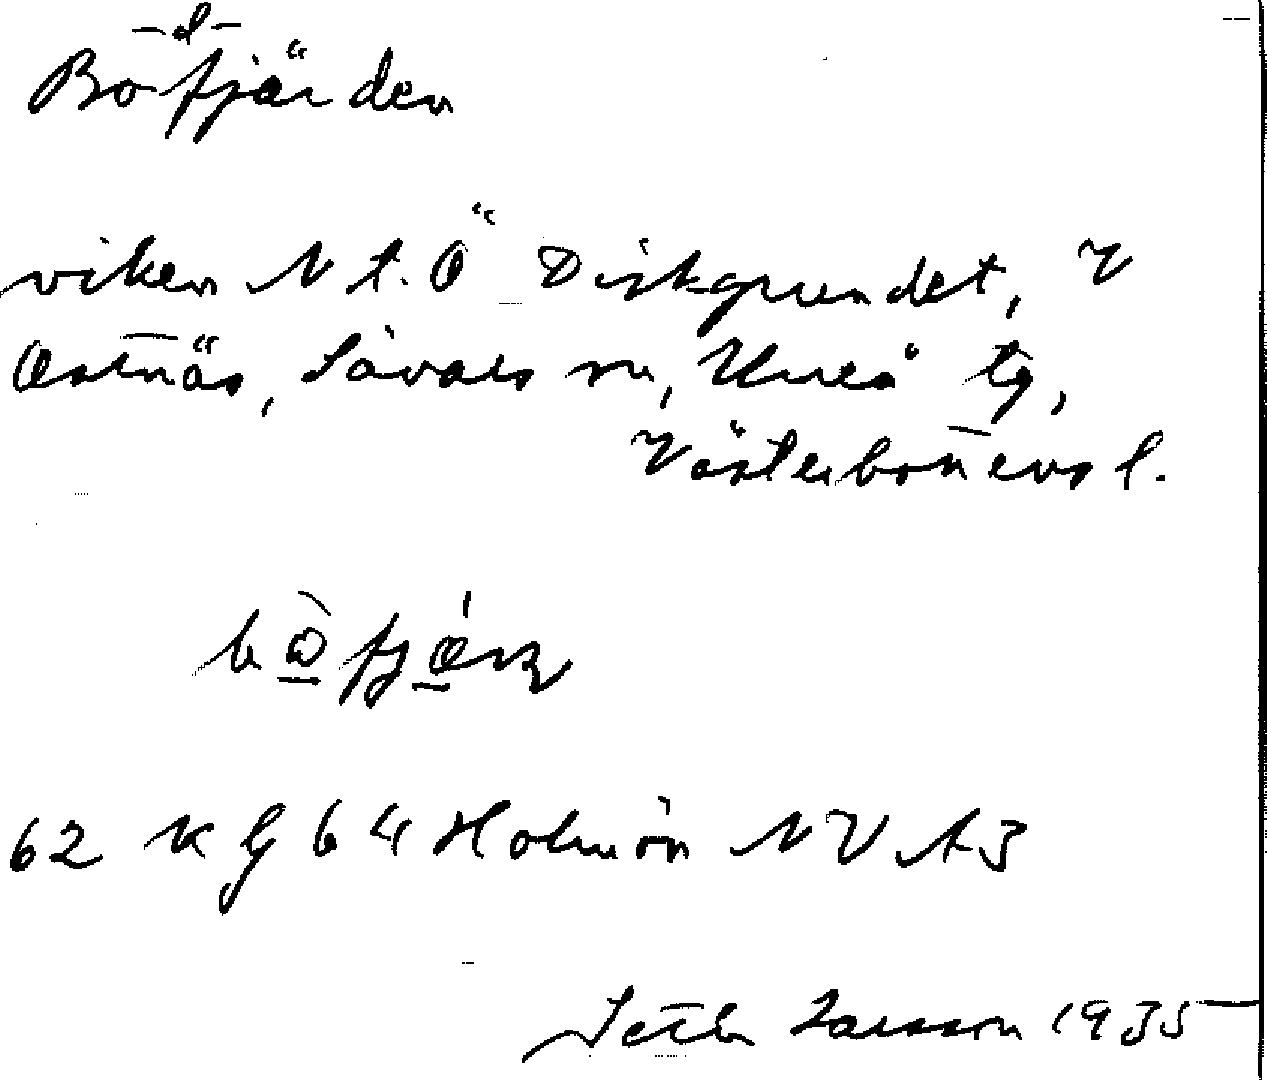 -d-
Bofjärden
viken N t. Ö Diskgrundet, V
Ostnäs, Sävars sn, Umeå tg,
Västerbottens l.
62 K g 6 4 Holmön NV A3
Seth Larsson 1935